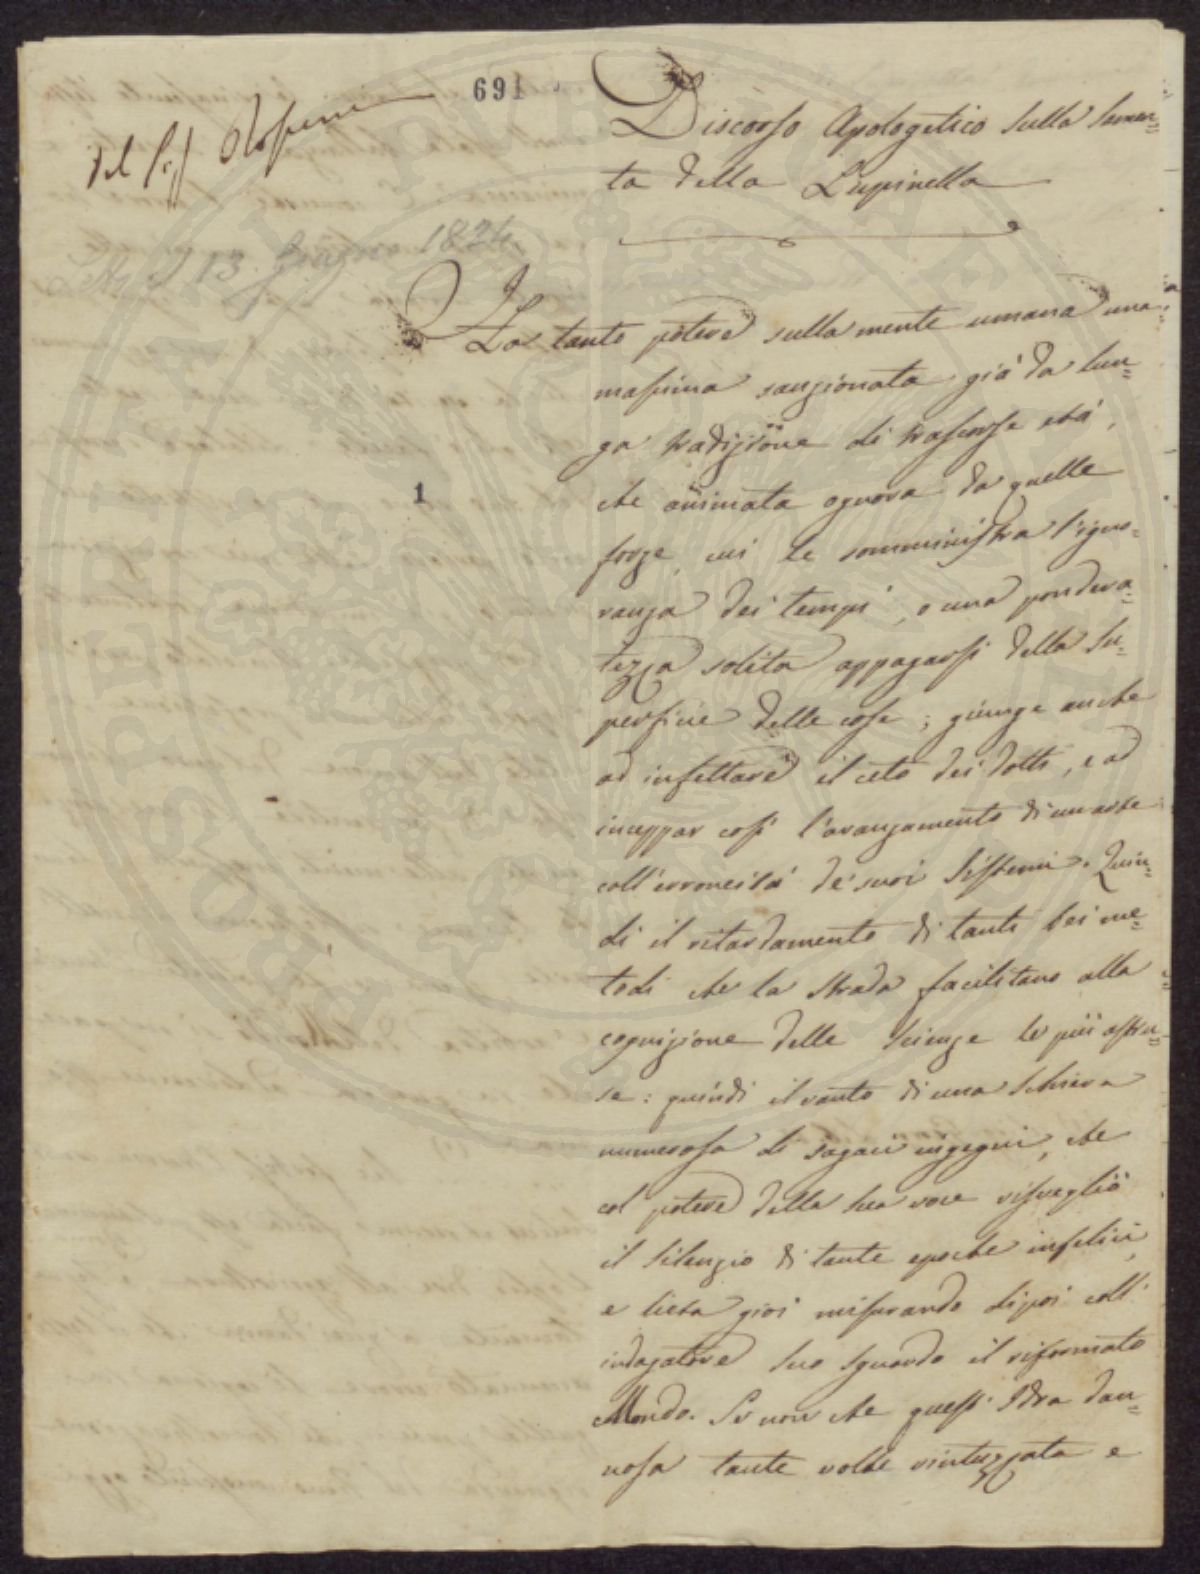 691
Del Sig
Letto il 13 Giugno 1824
Discorso Apologetico sulla semen=
ta della Lupinella
Ha tanto potere sulla mente umana una
massima sanzionata già da lun=
ga tradizione di trascorse età,
che animata ognora da quelle
1
forze, cui le somministra l'igno=
ranza dei tempi, o una pondera=
tezza solita appagarsi della su=
perficie delle cose; giunge anche
ad infettare il ceto dei dotti, e ad
inceppar così l'avanzamento di un arte
coll'erroneità de' suoi sistemi. Quin=
di il ritardamento di tanti bei me=
todi che la strada facilitano alla
cognizione delle scienze le più astru=
se: quindi il vanto di una schiera
numerosa di sagaci ingegni, che
col potere della sua voce risvegliò
il silenzio di tante epoche infelici,
e lieta gioì misurando dipoi coll'
indagatore suo sguardo il riformato
Mondo. Se non che quest'Idra dan=
nosa tante volte rintuzzata e